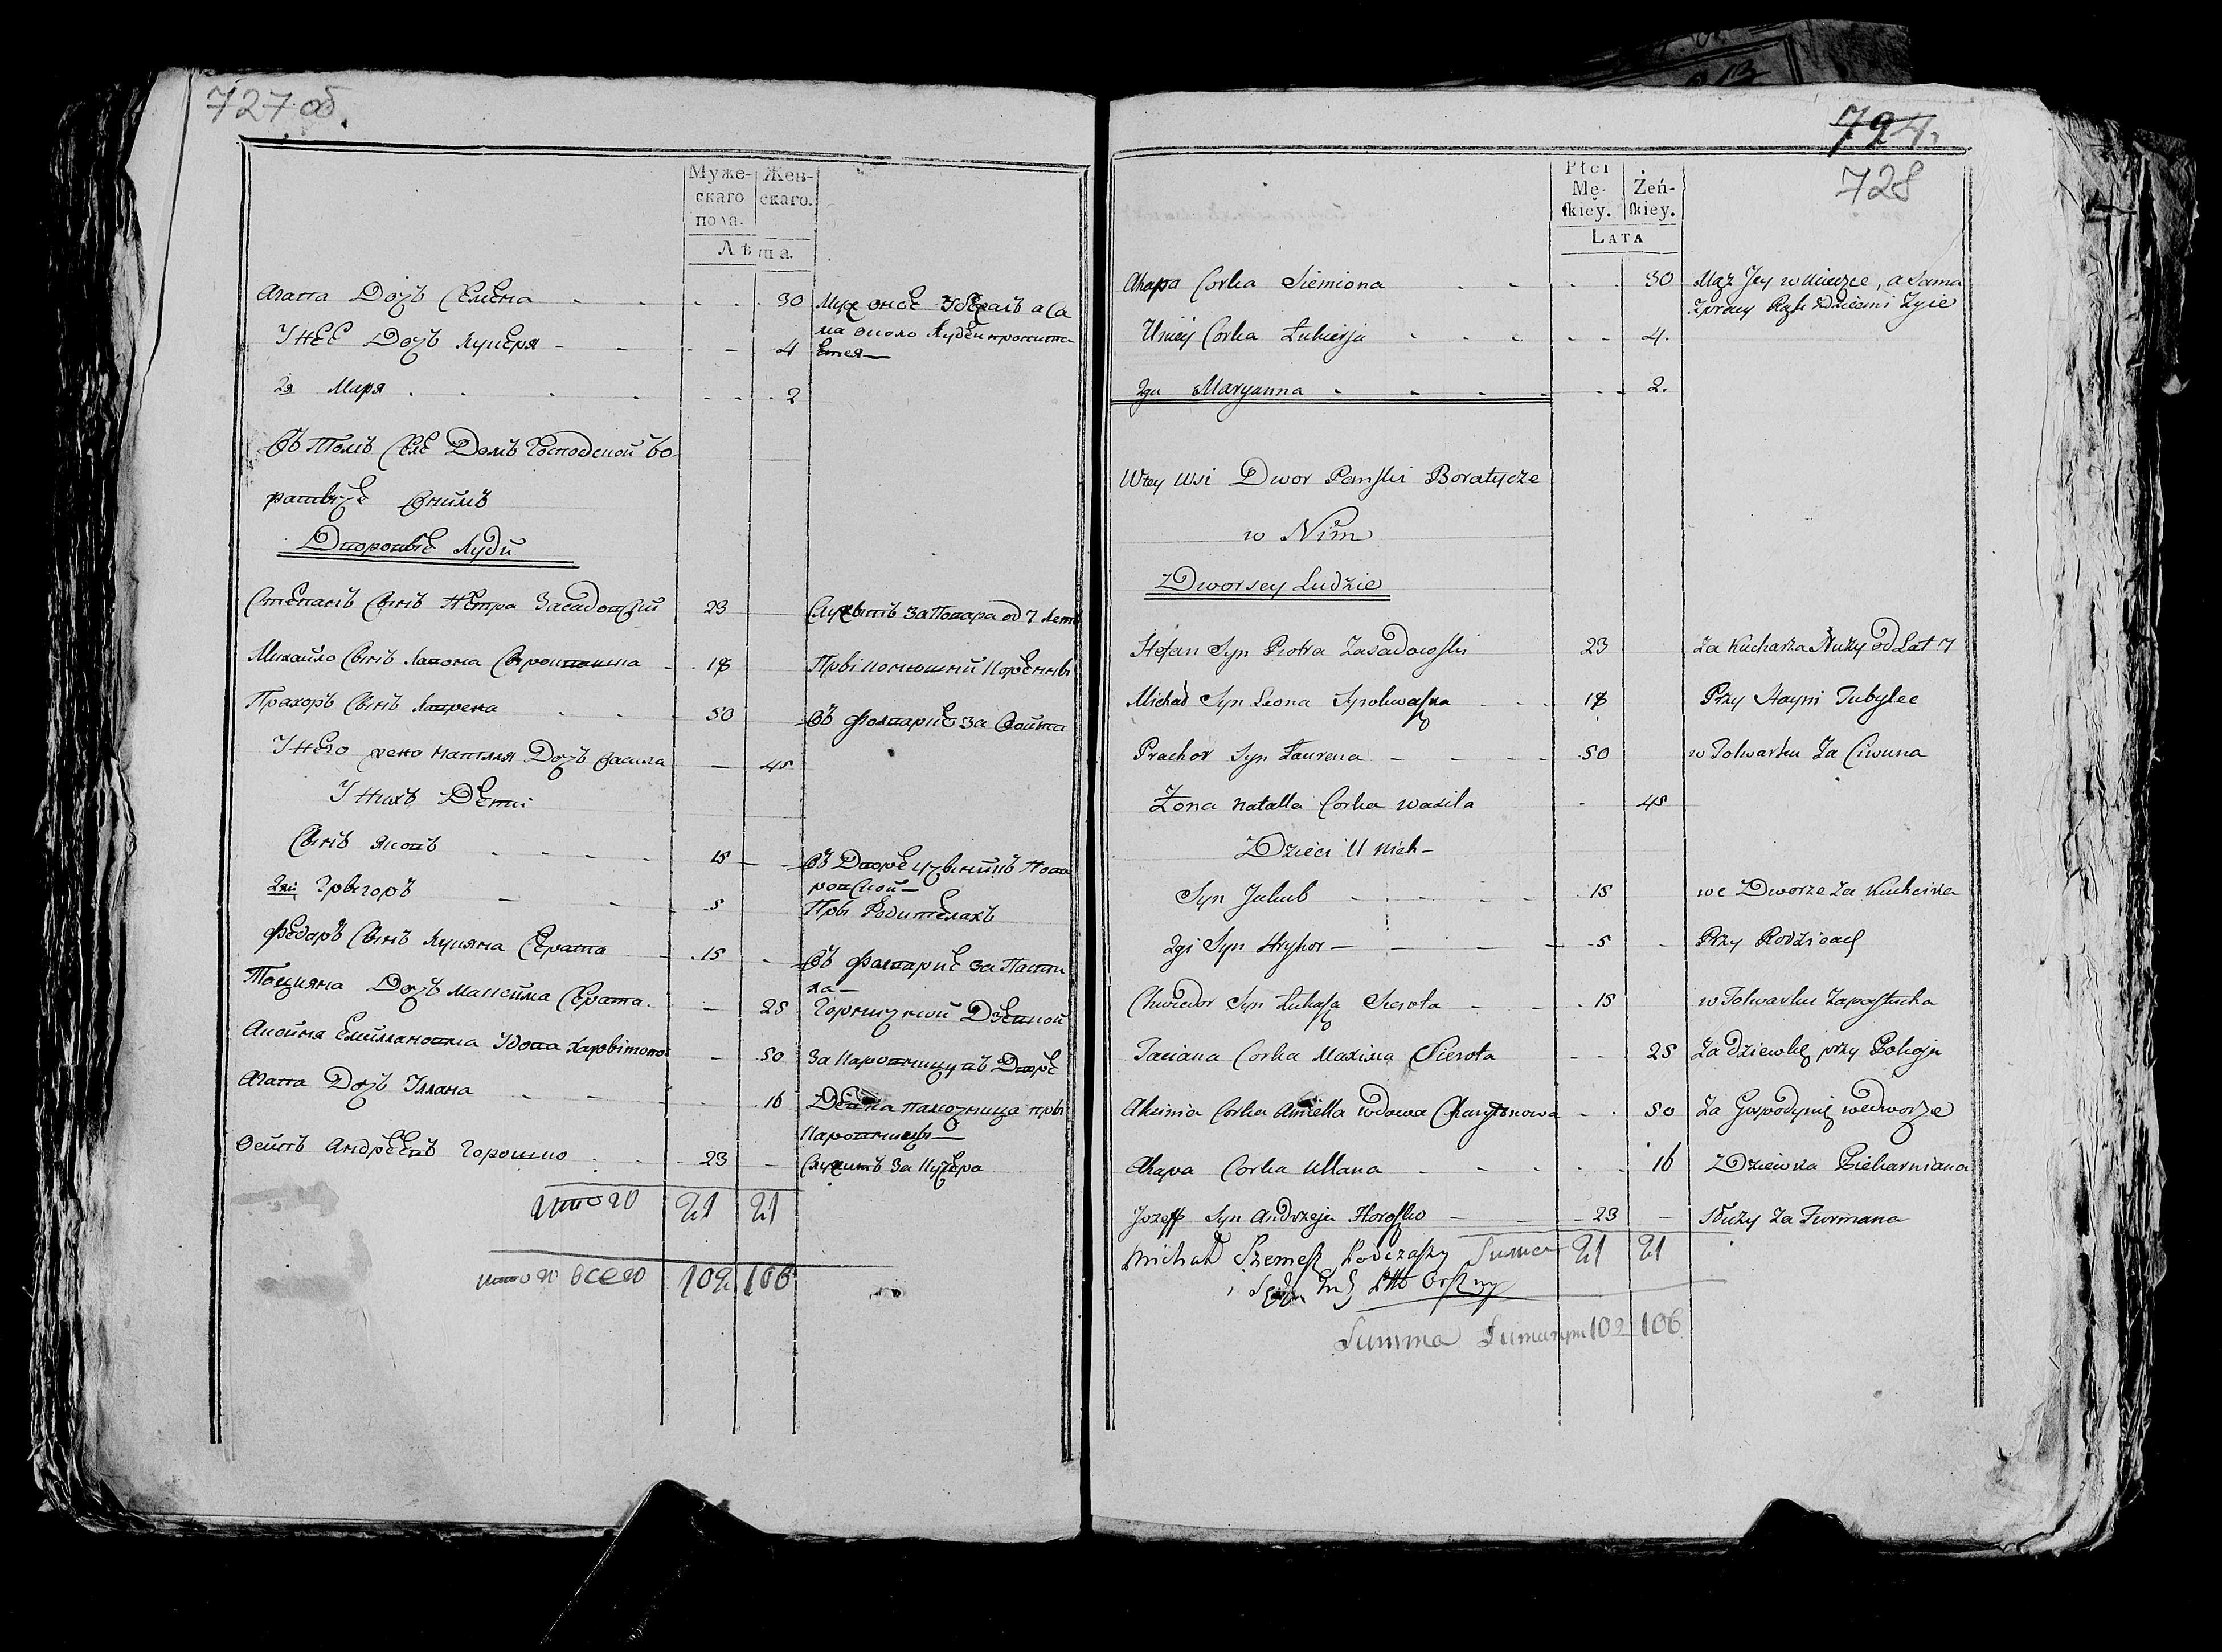 727 об.
Муже-
скаго
пола.
Жен-
скаго.
Лѣта.
Агапа Дочъ Семена 30
Муж онсе Убежалъ а Са
ма около Людей
У нее Дочъ Лукеря 4
2я Маря 2
Въ томъ Селе Домъ Господской Бо-
ратыче Внимъ
Дворовые Люди
Степанъ Сынъ Петра Засадовский 23 Служытъ за Повара од 7 летъ
Михайло Сынъ 18 Пры
Прахоръ Сынъ Лаврена 50 Въ Фольварке за Войта
У Него жена Наталля Дочъ Васила 45
У Нихъ Дети
Сынъ Яковъ 15 Въ Дворе
2ий Грыгоръ 5 Пры Родителахъ
Федаръ Сынъ Лукяна Серата 15 Въ Фалварке за Пасту
ха
Тацияна Дочъ Максима Серата 25 Горничной Девкой
50 За Каровницу въ Дворе
Агапа Дочъ Уллана 16 Девка памочница пры
Каровницы
Осипъ Андреевъ Горошко 23 Служитъ за Кучера
Итого 21 21
Итого всего 102 106
724.
728
Płci
Mę-
skiey.
Żeń-
skiey.
LATA
Ahapa Corka Siemiona 30 Mąż Jey w Ucieczce, a Sama
z pracy Rąk z Dziecmi Żyie
U niey Corka Łukierja 4.
2ga Maryanna 2.
W tey Wsi Dwor Pański Boratycze
w Nim
Dworscy Ludzie
Stefan Syn Piotra Zasadowski 23 Za Kucharza Służy od Lat 7
Michał Syn Leona 18 Przy Stayni
Prachor Syn Łaurena 50 w Folwarku Za Ciwuna
Żona Natalla Corka Wasila 45
Dzieci U nich
Syn Jakub 15 we Dworze Za Kuchcika
2gi Syn Hryhor 5 Przy Rodzicach
Chwiedor Syn Łukasza Sierota 15 w Folwarku Za pastucha
Taciana Corka Maxima Sierota 25 Za dziewkę przy Pokoju
Aksinia Corka wdowa Charytonowa 50 Za Gospodynię we dworze
Ahapa Corka Ullana 16 Dziewka Piekarniana
Jozeff Syn Andrzeja Horoszko 23 Służy Za Furmana
Michał Szemesz Podczaszy Summa 21 21
Summa Summarum 102 106